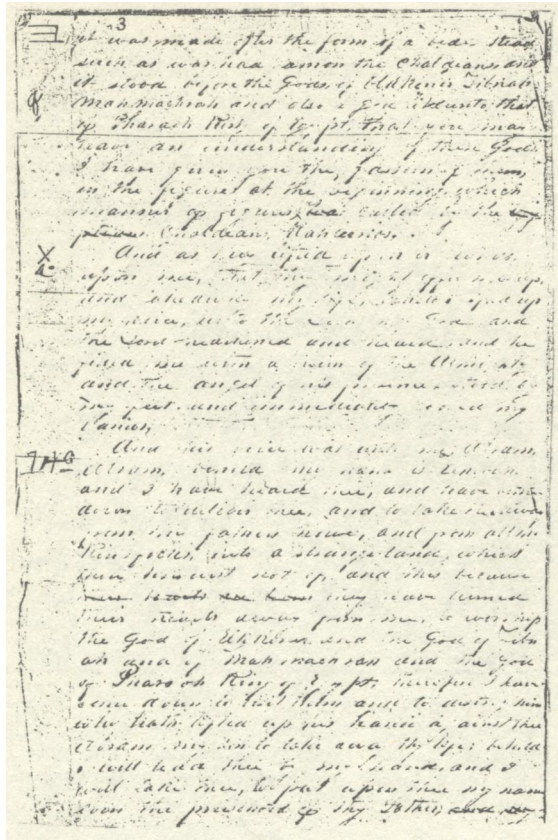 3
it was made after the form of a bedsted
such as was had among the Chaldeans and
it stood before the Gods of Elkkener Zibnah
Mahmachrah and also a God like unto that
of Pharaoh King of Egypt that you may
have an understanding of these Gods
I have given you the fassion of them
in the figures at the beginning which
manner of figures is called by the
Chaldeans
And as they lifted up their hands
upon me, that they might offer me up
and take away my life, behold I lifted up
my voice, unto the Lord my God and
the Lord hearkened and heard and he
filled me with a vision of the Almighty
and the angel of his presence stood by
my feet and immediately loosed my
bands,
And his voice was unto me Abram
Abram, behold my name is
and I have heard thee, and have come
down to deliver thee, and to take thee away
from thy fathers house, and from all thy
kinsfolks, into a strange land, which
thou knowest not of, and this because
they have turned
their hearts away from me, to worship
the God of Elkkener and the God of Zibn
ah and of Mahmachrah and the God
of Pharaoh King of Egypt; therefore I have
come down to visit them and to destroy him
who hath lifted up his hand against thee
Abram my son to take away thy life; behold
I will lead thee by my hand, and I
will take thee, to put upon thee my name
even the priesthood of thy Father, and